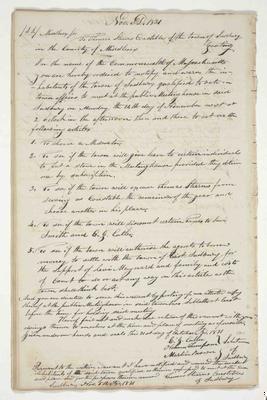 Nov. 14. 1831
To Thomas Stearns Constable of the town of Sudbury
in the County of Middlesex Greeting
In the name of the Commonwealth of Massachusetts
you are hereby ordered to notify and warn the in-
habitants of the Town of Sudbury qualified to vote in
town affairs to meet at the public Meeting house in said
Sudbury on Monday the 14th day of November next at
2 o'clock in the afternoon then and there to act on the
following articles
1. To choose a Moderator
2. To see if the town will give leave to certain individuals
to put a stove in the Meetinghouse provided they obtain
one by subscription.
3. To see if the town will excuse Thomas Stearns from
serving as Constable the remainder of the year and
choose another in his place.
4. To see if the town will discount certain taxes to
Smith and C. G. Cutler
5. To see if the town will authorize the agents to
money to settle with the town of East Sudbury for
the support of Maynard and family and cost
of Court or do or say any thing in this article as the
town shall think best.
And you are directed to serve this warrant by posting of an attested copy
at the public Meetinghouse in said town days at least
before the time for holding said meeting
Thereof fail not and make due return of this warrant
doings thereon to us at the time and place of meeting aforesaid
Given under our hands and seals this day of October 1831
C. G. Cutler
Thompson
Selectmen
of Sudbury
Pursuant to the within warrant I have notified and warned the
inhabitants of the town qualified as therein expressed to meet at the time
and place
Sudbury Nov. 1831 Thomas Stearns Constable
of Sudbury